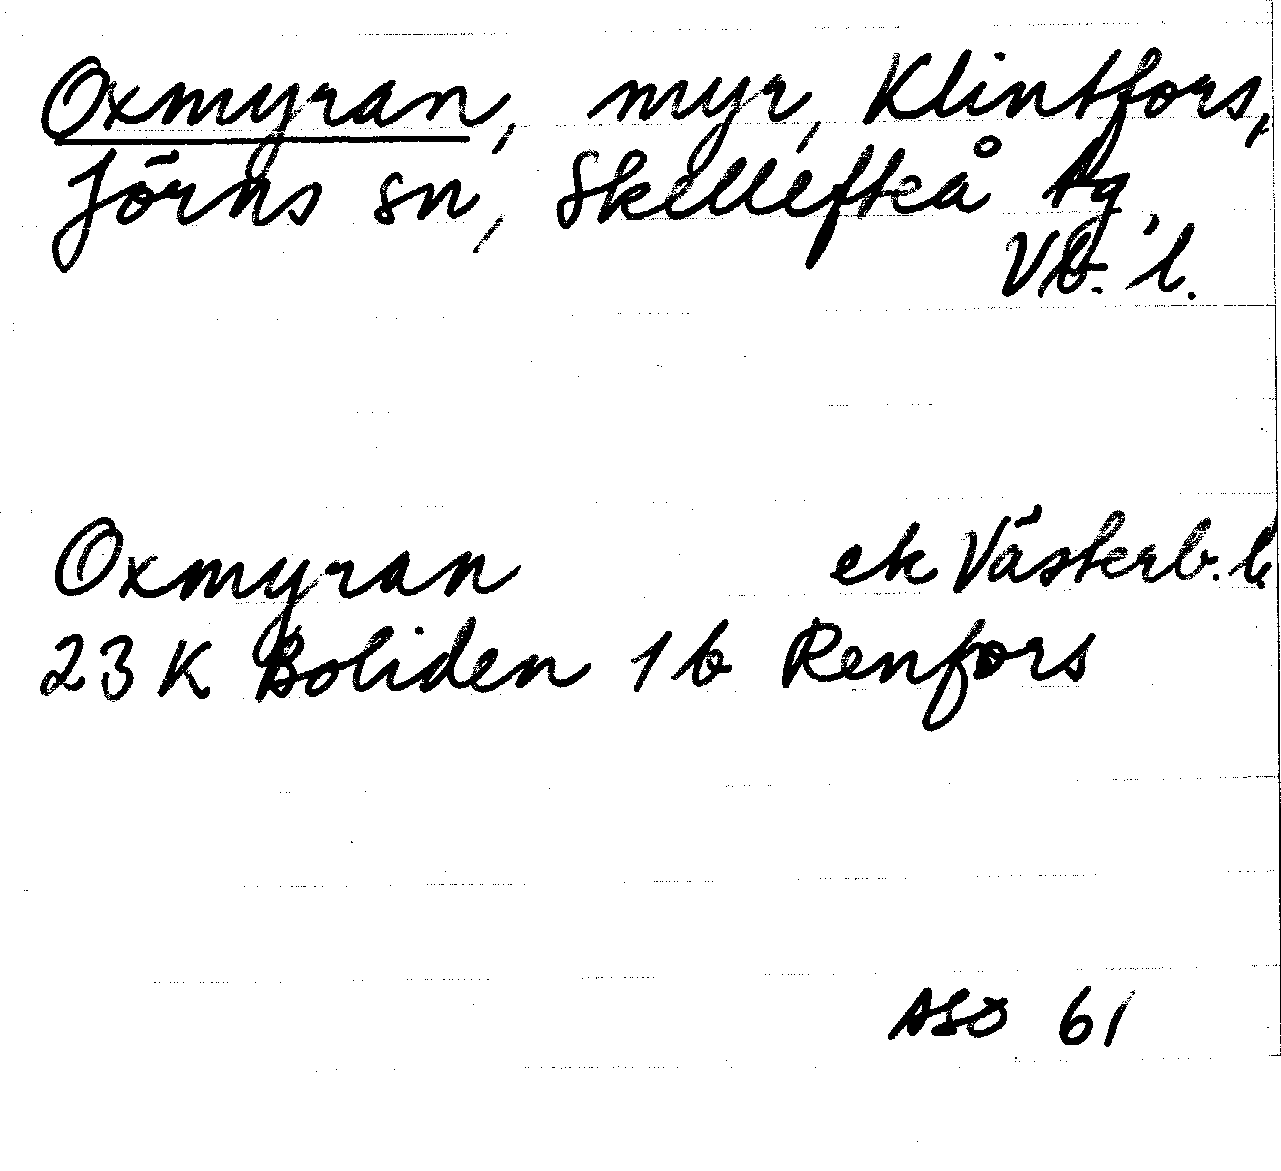 Oxmyran, myr, Klintfors,
Jörns sn, Skellefteå tg,
Vb. l.
Oxmyran ek Västerb. l.
23 K Boliden 1 b Renfors
ASO 61